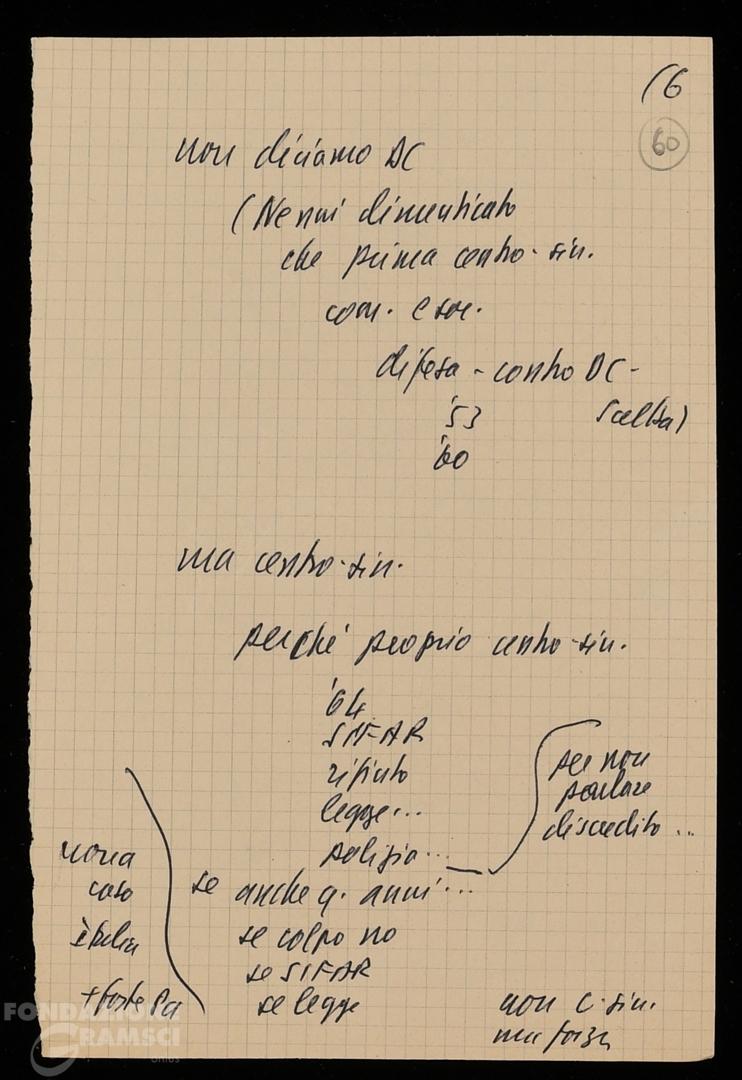 (6
60
non diciamo DC
(Nenni dimenticato
che prima centro-sin.
com. e soc.
difesa - contro DC -
'53 Scelba)
'60
ma centro-sin.
perché proprio centro-sin.
'64
SIFAR
rifiuto
legge...
polizia...
se anche q. anni...
se colpo no
se SIFAR
se legge
per non
parlare
discredito...
non a
caso
Italia
+ forte Pci
non c-sin.
ma forza
FONDAZIONE
GRAMSCI
onlus